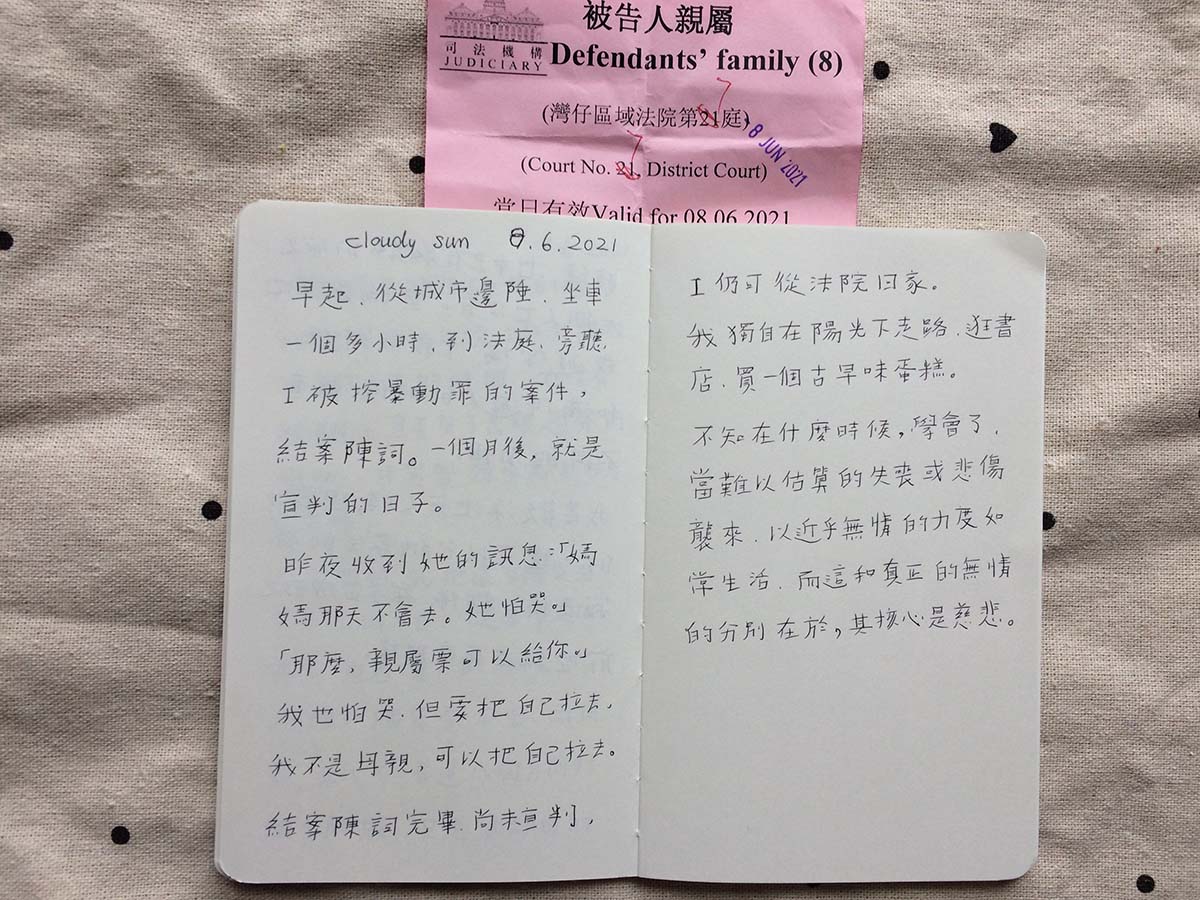 司法機構
JUDICIARY
被告人親屬
Defendants' family (8)
(灣仔區域法院第21庭)
7
(Court No. 21, District Court)
7
8 JUN 2021
當日有效Valid for 08.06.2021
cloudy sun 8.6.2021
早起、從城市邊陲、坐車
一個多小時、到法庭、旁聽
I被控暴動罪的案件，
結案陳詞。一個月後，就是
宣判的日子。
昨夜收到她的訊息：「媽
媽那天不會去。她怕哭。」
「那麼，親屬票可以給你。」
我也怕哭、但要把自己拉去，
我不是母親，可以把自己拉去。
結案陳詞完畢、尚未宣判，
I仍可從法院回家。
我獨自在陽光下走路、逛書
店、買一個古早味蛋糕。
不知在什麼時候，學會了、
當難以估算的失喪或悲傷
襲來、以近乎無情的力度如
常生活、而這和真正的無情
的分別在於，其核心是慈悲。